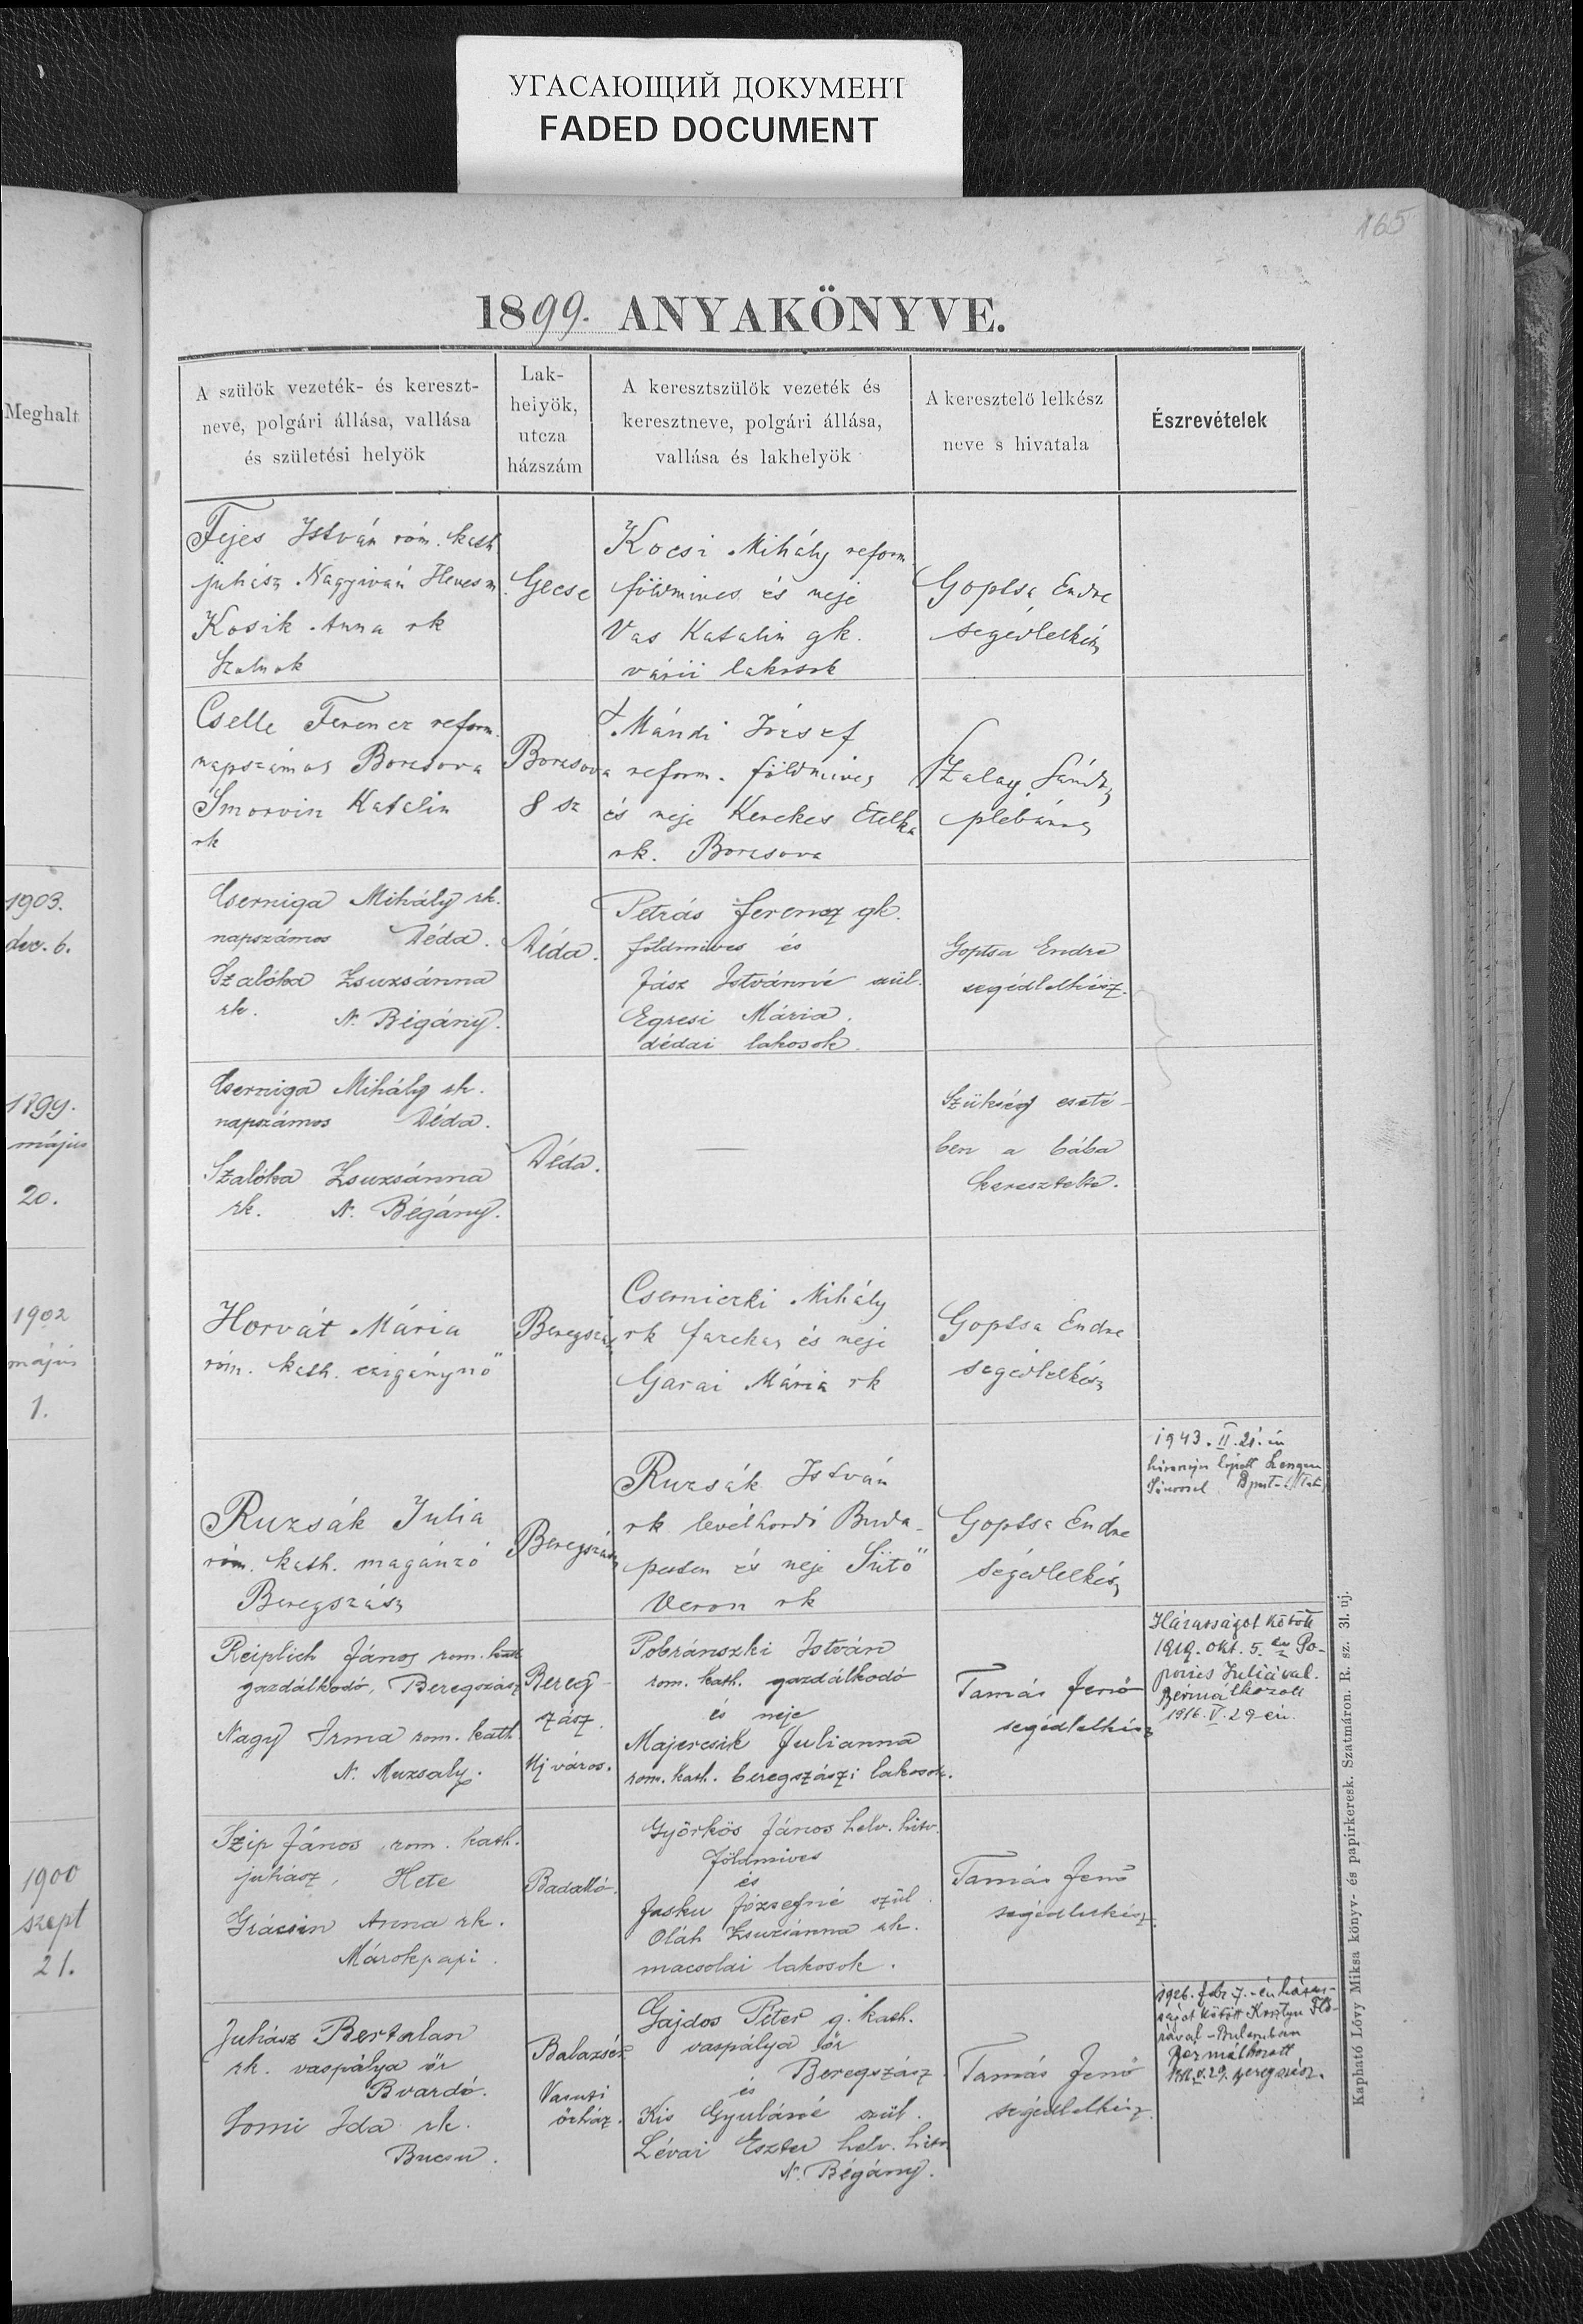 УГАСАЮЩИЙ ДОКУМЕНТ
FADED DOCUMENT
165
1899. ANYAKÖNYVE.
Meghalt
A szülök vezeték- és kereszt-
neve, polgári állása, vallása
és születési helyök
Lak-
helyök,
utcza
házszám
A keresztszülök vezeték és
keresztneve, polgári állása,
vallása és lakhelyök
A keresztelő lelkész
neve s hivatala
Észrevételek
Fejes István róm. kath
juhász Nagyiván Heves m
Kosik Anna rk
Szolnok
Gecse
Kocsi Mihály reform
földmives és neje
Vas Katalin gk.
várii lakosok
Goptsa Endre
segédlelkész
Cselle Ferencz reform.
napszámos Borzsova
Smorvin Katalin
rk
Borzsova
8 sz
Mándi József
reform. földmives
és neje Kerekes Etelka
rk. Borzsova
Szalay Sándor
plébános
1903.
dec. 6.
Cserniga Mihály rk.
napszámos Déda.
Szalóka Zsuzsánna
rk. N. Bégány.
Déda.
Petrás Ferencz gk.
földmives és
Jász Istvánné szül.
Egresi Mária.
dédai lakosok.
Goptsa Endre
segédlelkész.
1899.
május
20.
Cserniga Mihály rk.
napszámos Déda.
Szalóka Zsuzsánna
rk. N. Bégány.
Déda.
—
Szükség eseté-
ben a bába
keresztelte.
1902
május
1.
Horvát Mária
róm. kath. czigánynő
Beregszász
Cserniczki Mihály
rk farekas és neje
Garai Mária rk
Goptsa Endre
segédlelkész
Ruzsák Julia
róm. kath. magánzó
Beregszász
Beregszász
Ruzsák István
rk levélhordó Buda-
pesten és neje Sütő
Veron rk
Goptsa Endre
segédlelkész
1943. II. 21. én
Reiplich János rom. kath
gazdálkodó, Beregszász
Nagy Irma rom. kath
N. Muzsaly.
Bereg-
szász.
Uj város.
Pobránszki István
rom. kath. gazdálkodó
és neje
Majercsik Julianna
rom. kath. beregszászi lakosok.
Tamás Jenő
segédlelkész
Házasságot kötött
1919. okt. 5. én Po-
povics Juliával.
Bérmálkozott
1916. V. 29-én.
1900
szept
21.
Szip János, rom. kath.
juhász, Hete
Grácsin Anna rk.
Márokpapi.
Badalló.
Györkös János helv. hitv.
földmives
és
Jasku Józsefné szül.
Oláh Zsuzsánna rk.
macsolai lakosok.
Tamás Jenő
segédlelkész.
Juhász Bertalan
rk. vaspálya őr
Bvardó.
Somi Ida rk.
Bucsu.
Balazsér
Vasuti
őrház.
Gajdos Péter g. kath.
vaspálya őr
Beregszász
és
Kis Gyuláné szül.
Lévai Eszter helv. hitv
N. Bégány.
Tamás Jenő
segédlelkész.
1926. febr 7.-én házas-
ságot kötött Fló-
rával
Bérmálkozott
V. 29. Beregszász.
Kapható Lővy Miksa könyv- és papirkeresk. Szatmáron. R. sz. 3l. uj.